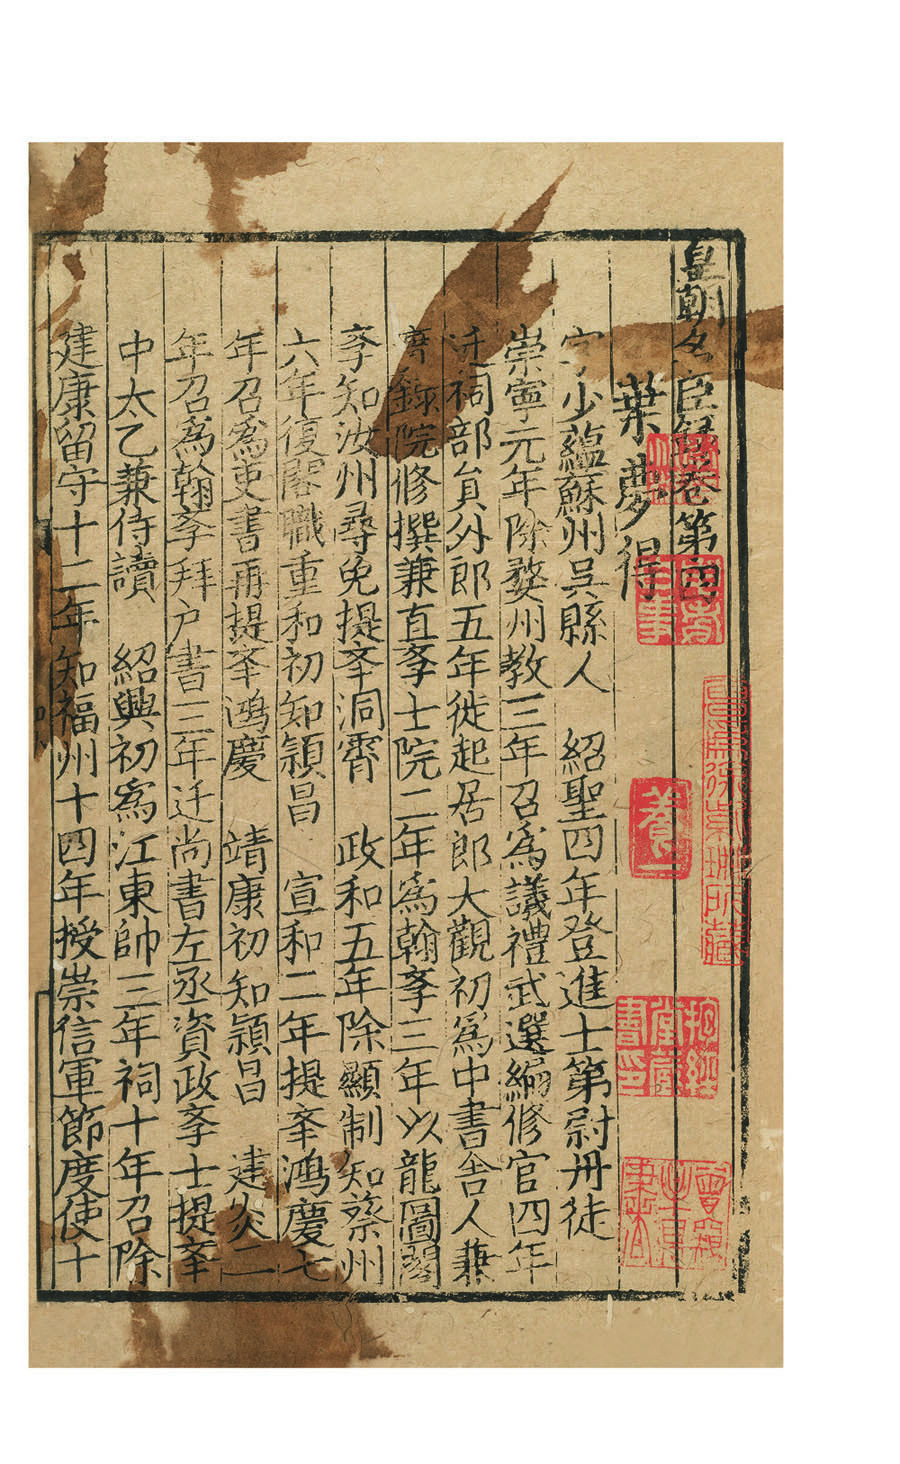 皇朝名臣錄卷第四
葉夢得
字少蘊蘇州吳縣人　紹聖四年登進士第尉丹徒
崇寧元年除婺州教三年召爲議禮武選編修官四年
迁祠部貟外郎五年徙起居郎大觀初爲中書舍人兼
實錄院修撰兼直斈士院二年爲翰斈三年以龍圖閣
斈知汝州尋免提夅洞霄　政和五年除顯制知蔡州
六年復閣職重和初知潁昌　宣和二年提夅鴻慶七
年召爲吏書再提夅鴻慶　靖康初知潁昌　建炎二
年召爲翰斈拜户書三年迁尚書左丞資政斈士提夅
中太乙兼侍讀　紹興初爲江東帥三年祠十年召除
建康留守十二年知福州十四年授崇信軍節度使十
養一
抱經堂藏書印